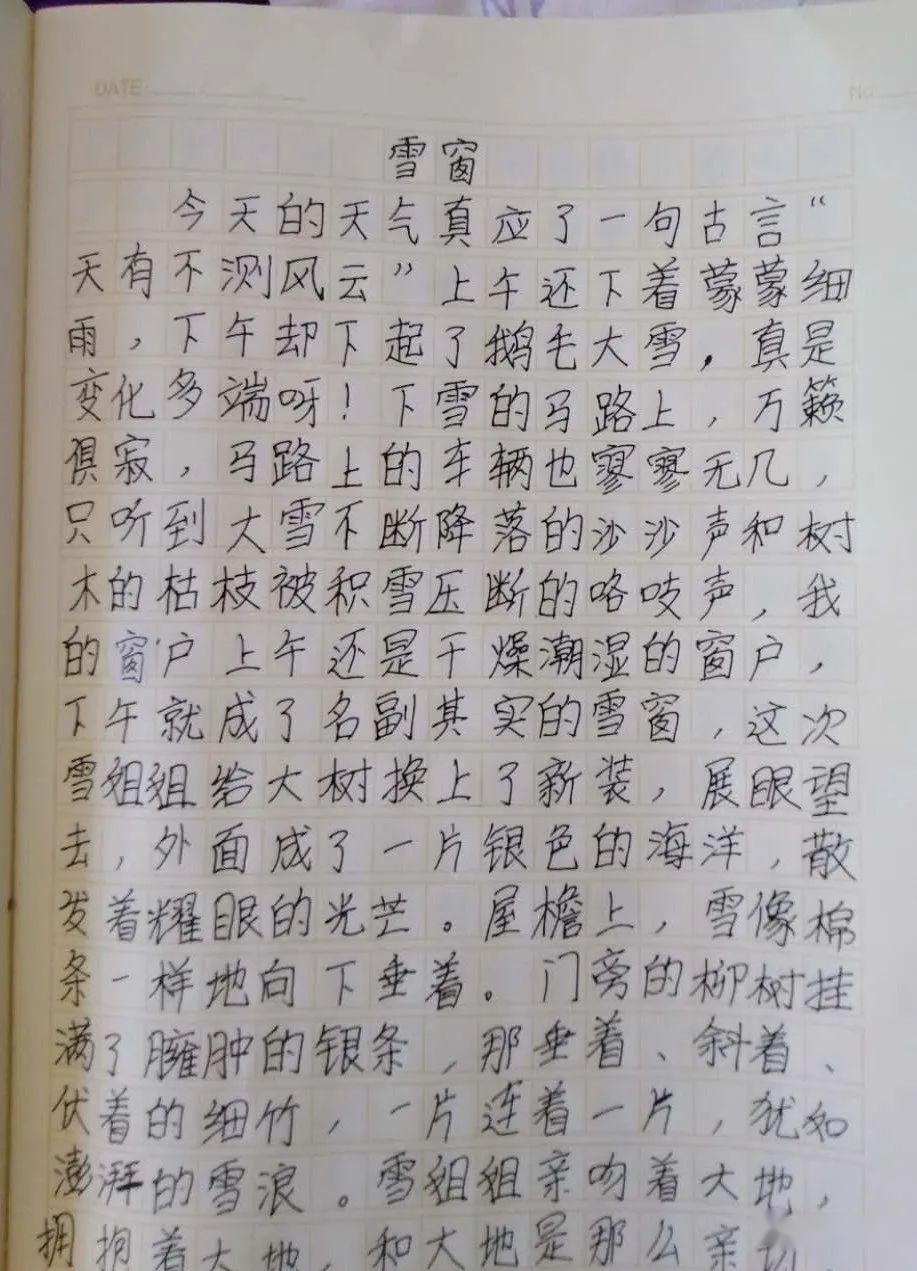 DATE
No
雪窗
今天的天气真应了一句古言“
天有不测风云”上午还下着蒙蒙细
雨，下午却下起了鹅毛大雪，真是
变化多端呀！下雪的马路上，万籁
俱寂，马路上的车辆也寥寥无几，
只听到大雪不断降落的沙沙声和树
木的枯枝被积雪压断的咯吱声，我
的窗户上午还是干燥潮湿的窗户，
下午就成了名副其实的雪窗，这次
雪姐姐给大树换上了新装，展眼望
去，外面成了一片银色的海洋，散
发着耀眼的光芒。屋檐上，雪像棉
条一样地向下垂着。门旁的柳树挂
满了臃肿的银条，那垂着、斜着、
伏着的细竹，一片连着一片，犹如
澎湃的雪浪。雪姐姐亲吻着大地，
拥抱着大地，和大地是那么亲切，